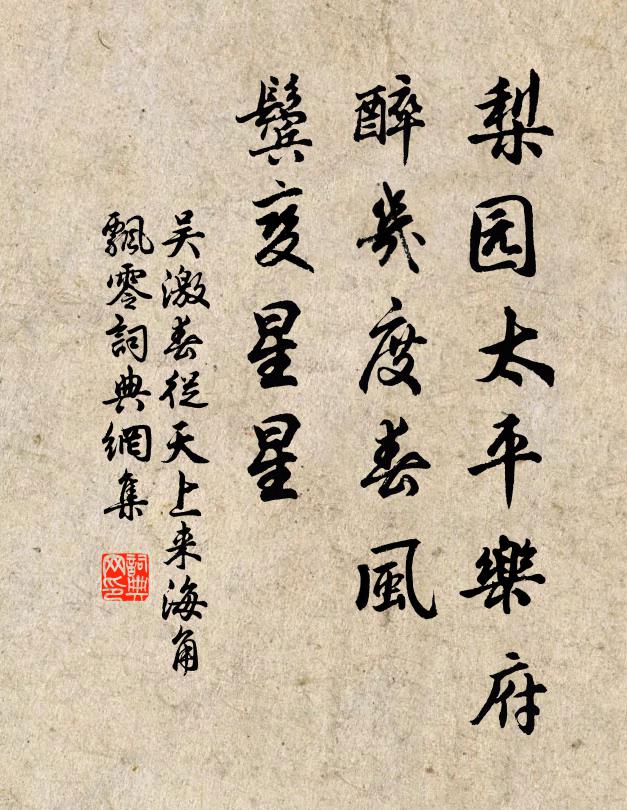 梨园太平樂府
醉幾度春風
鬓变星星
吴激春從天上来海角
飄零詞典網集
詞典网印